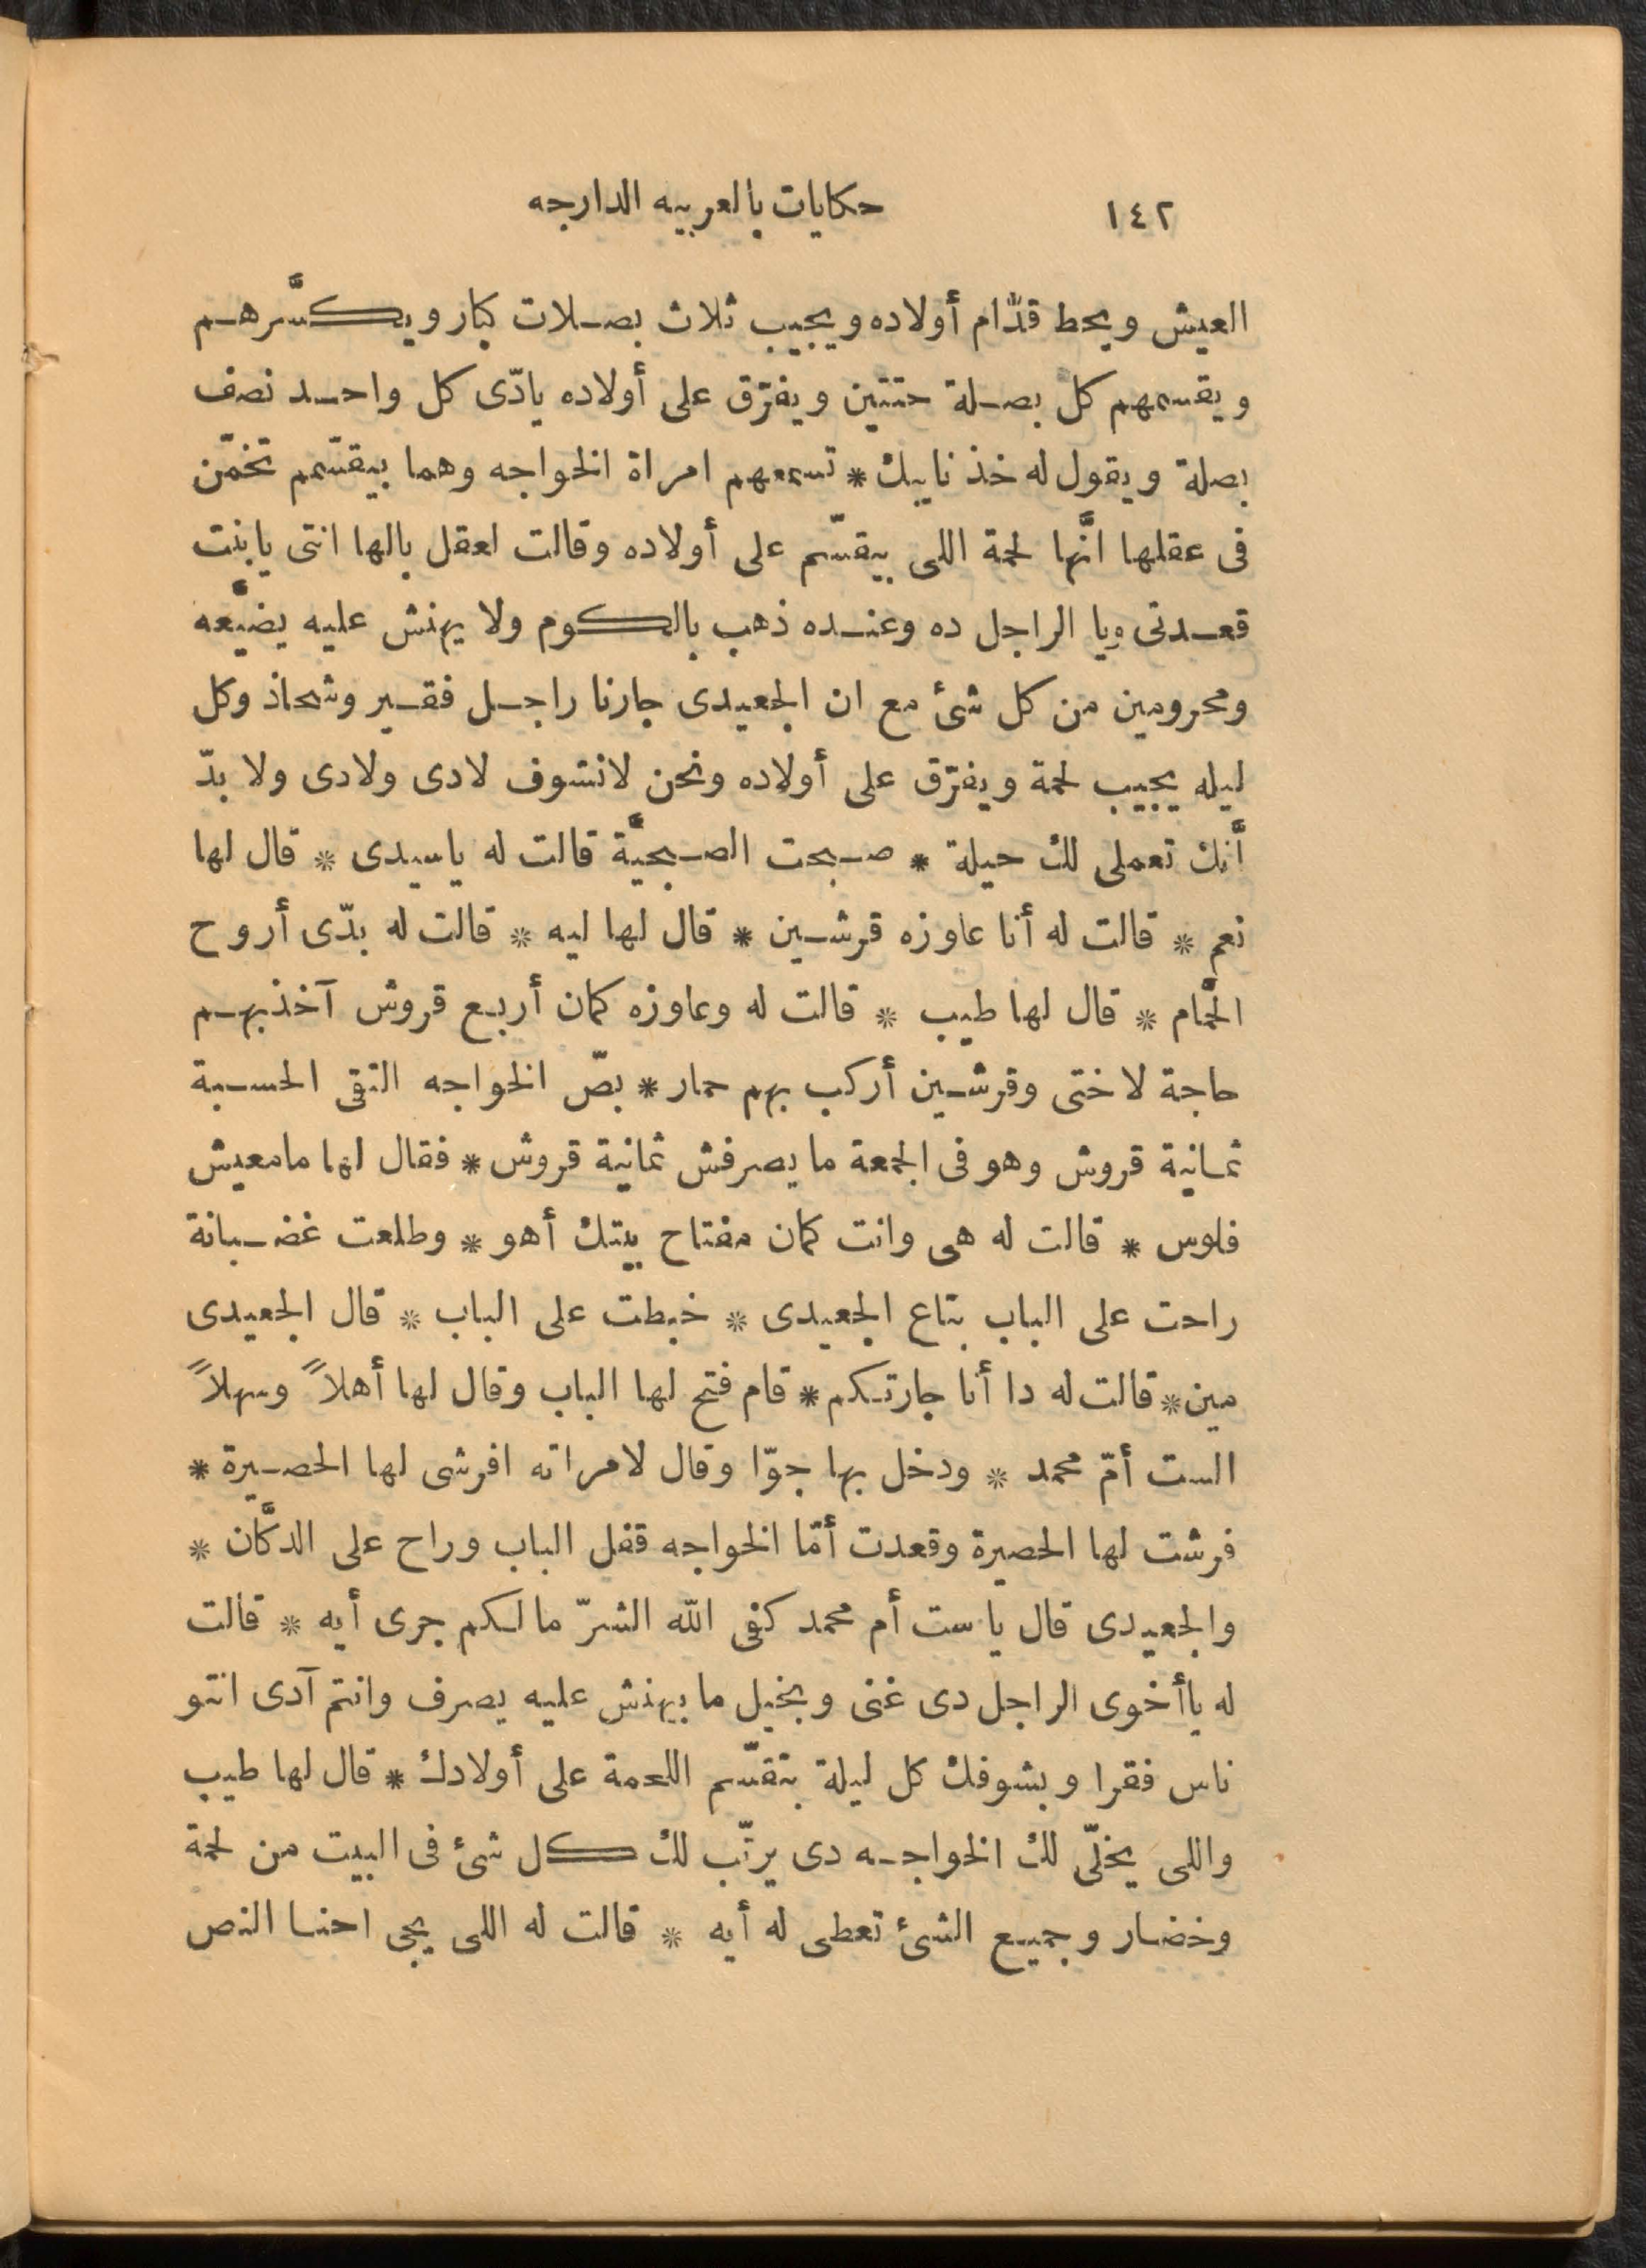 ١٤٢ حكايات بالعربيه الدارجه
العيش ويحط قدّام أولاده ويجيب ثلاث بصلات كبار ويكسَّرهم
ويقسمهم كل بصلة حتتين ويفرّق على أولاده يادّى كل واحد نصف
بصلة ويقول له خذ نايبك * تسمعهم امراة الخواجه وهما بيقسّمم تخمّن
فى عقلها انَّها لحمة اللى بيقسّم على أولاده وقالت لعقل بالها انتى يابنت
قعدتى وِيا الراجل ده وعنده ذهب بالكوم ولا يهنش عليه يضيَّعه
ومحرومين من كل شئ مع ان الجعيدى جارنا راجل فقير وشحاذ وكل
ليله يجيب لحمة ويفرّق على أولاده ونحن لانشوف لادى ولادى ولا بدّ
أنَّك تعملى لك حيلة * صبحت الصبحيَّة قالت له ياسيدى * قال لها
نعم * قالت له أنا عاوزه قرشين * قال لها ليه * قالت له بدّى أروح
الحَّمام * قال لها طيب * قالت له وعاوزه كمان أربع قروش آخذبهم
حاجة لاختى وقرشين أركب بهم حمار * بصّ الخواجه التقى الحسبة
ثمانية قروش وهو فى الجمعة ما يصرفش ثمانية قروش * فقال لها مامعيش
فلوس * قالت له هى وانت كمان مفتاح بيتك أهو * وطلعت غضبانة
راحت على الباب بتاع الجعيدى * خبطت على الباب * قال الجعيدى
مين * قالت له دا أنا جارتكم * قام فتح لها الباب وقال لها أهلاً وسهلاً
الست أمّ محمد * ودخل بها جوّا وقال لامراته افرشى لها الحصيرة *
فرشت لها الحصيرة وقعدت أمّا الخواجه قفل الباب وراح على الدكَّان *
والجعيدى قال ياست أم محمد كفى الله الشرّ مالكم جرى أيه * قالت
له ياأخوى الراجل دى غنى وبخيل ما بيهنش عليه يصرف وانتم آدى انتو
ناس فقرا وبشوفك كل ليلة بتقسّم اللحمة على أولادك * قال لها طيب
واللى يخلّى لك الخواجه دى يرتّب لك كل شئ فى البيت من لحمة
وخضار وجميع الشئ تعطى له أيه * قالت له اللى يجى احنا النص